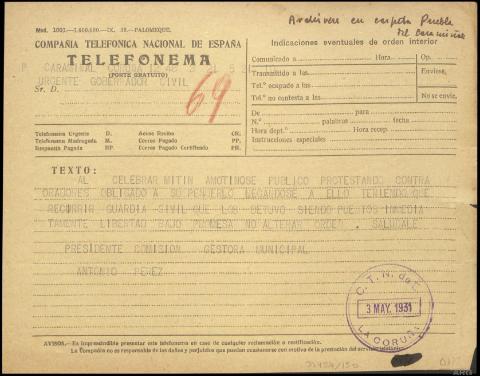 Archivese en carpeta Puebla
del Caramiñal
Mod. 1002.-1.600.000.-IX. 29.-PALOMEQUE.
COMPAÑIA TELEFONICA NACIONAL DE ESPAÑA
TELEFONEMA
(PORTE GRATUITO)
P CARAMINAL CORUÑA
URGENTE GOBERNADOR CIVIL
Sr. D.
69
Telefonema Urgente D.
Telefonema Madrugada M.
Respuesta Pagada RP.
Acuse Recibo CR.
Correo Pagado PP.
Correo Pagado Certificado PR.
Indicaciones eventuales de orden interior
Comunicado a Hora Op.
Transmitido a las Envíese,
Tel.º ocupado a las
Tel.º no contesta a las No se envíe,
De para
N.º palabras fecha
Hora dept.º Hora recep.
Instrucciones especiales
TEXTO:
AL CELEBRAR MITIN AMOTINOSE PUBLICO PROTESTANDO CONTRA
ORADORES OBLIGADO A SUSPENDERLO NEGANDOSE A ELLO TENIENDO QUE
RECURRIR GUARDIA CIVIL QUE LOS DETUVO SIENDO PUESTOS INMEDIA
TAMENTE LIBERTAD BAJO PROMESA NO ALTERAR ORDEN . SALUDALE
PRESIDENTE COMISION GESTORA MUNICIPAL
ANTONIO PEREZ
C. T. N. de E.
3 MAY. 1931
LA CORUÑA
AVISOS.-Es imprescindible presentar este telefonema en caso de cualquier reclamación o rectificación.
La Compañía no es responsable de los daños y perjuicios que puedan ocasionarse con motivo de la prestación del servicio telefónico.